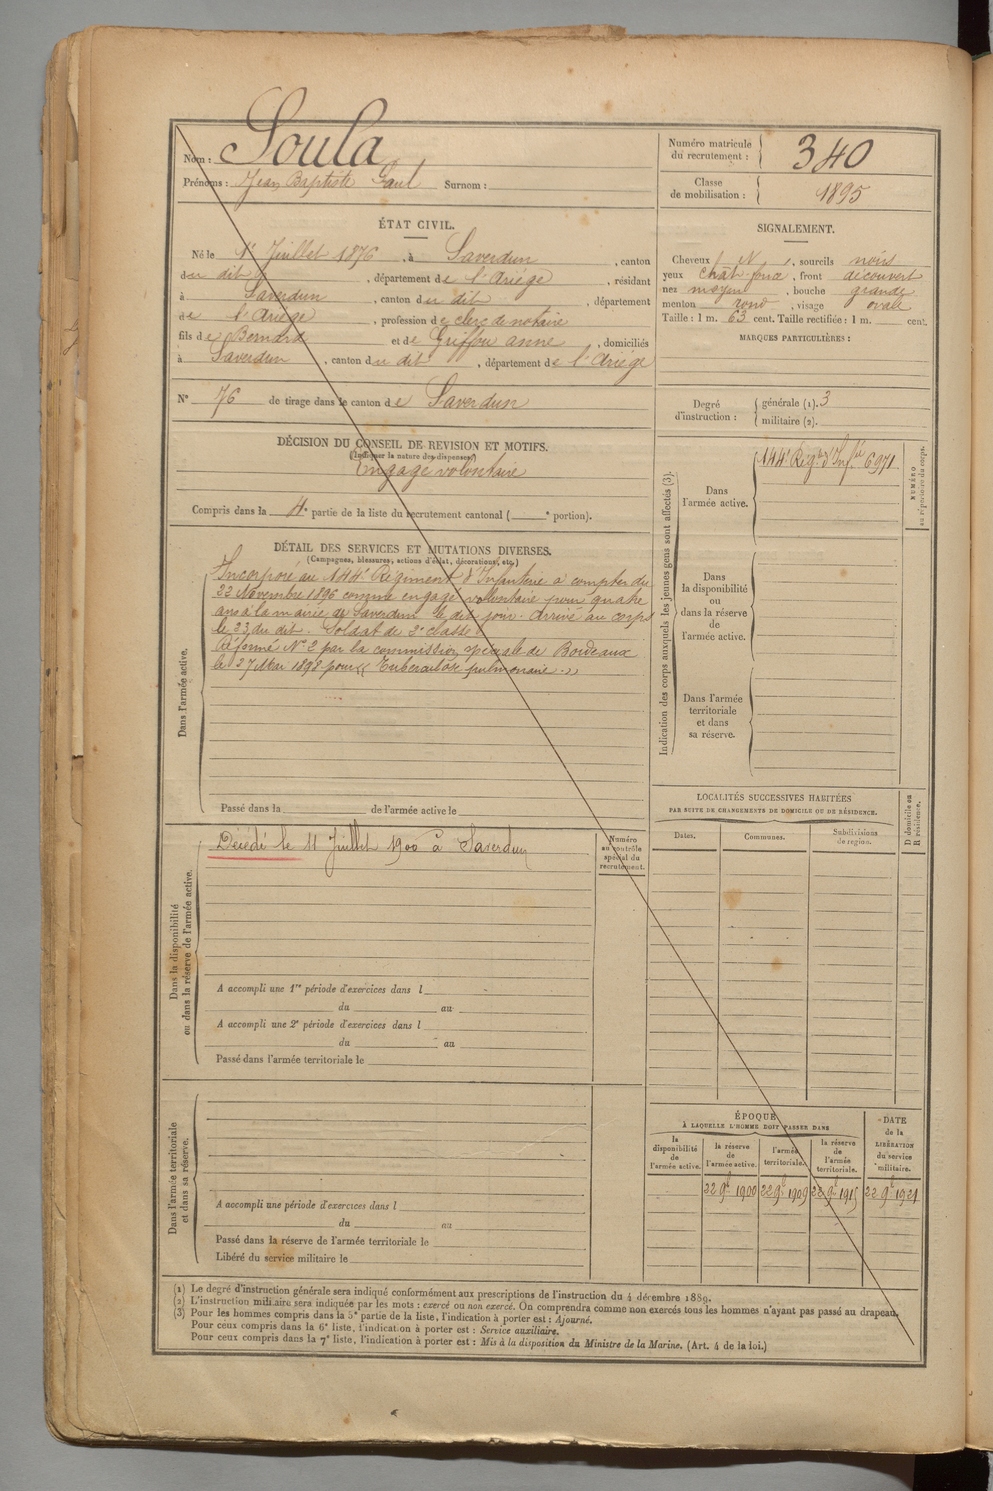 Nom : Soula
Prénoms : Jean Baptiste Paul Surnom :
Numéro matricule du recrutement : 340
Classe de mobilisation : 1895
ÉTAT CIVIL.
Né le 1er Juillet 1876, à Saverdun, canton
du dit, département de l'Ariège, résidant
à Saverdun, canton du dit, département
de l'Ariège, profession de clerc de notaire
fils de Bernard et de Griffou anne, domiciliés
à Saverdun, canton du dit, département de l'Ariège
N° 76 de tirage dans le canton de Saverdun
SIGNALEMENT.
Cheveux N, sourcils noirs
yeux chat. , front découvert
nez moyen, bouche grande
menton rond, visage ovale
Taille : 1 m. 63 cent. Taille rectifiée : 1 m. cent.
MARQUES PARTICULIÈRES :
Degré d'instruction : générale (1). 3
militaire (2).
DÉCISION DU CONSEIL DE REVISION ET MOTIFS.
(Indiquer la nature des dispenses)
Engagé volontaire
Compris dans la 4e partie de la liste du recrutement cantonal ( e portion).
DÉTAIL DES SERVICES ET MUTATIONS DIVERSES.
(Campagnes, blessures, actions d'éclat, décorations, etc.)
Dans l'armée active.
Incorporé au 144e Régiment d'Infanterie à compter du
22 Novembre 1896 comme engagé volontaire pour quatre
ans à la mairie de Saverdun le dit jour. Arrivé au corps
le 23 du dit. Soldat de 2e classe.
Réformé N° 2 par la commission spéciale de Bordeaux
le 27 Mai 1898 pour « Tuberculose pulmonaire. »
Passé dans la de l'armée active le
Indication des corps auxquels les jeunes gens sont affectés (3).
Dans l'armée active.
144e Régt d'Infie 6971
NUMÉRO au répertoire du corps.
Dans la disponibilité ou dans la réserve de l'armée active.
Dans l'armée territoriale et dans sa réserve.
LOCALITÉS SUCCESSIVES HABITÉES
PAR SUITE DE CHANGEMENTS DE DOMICILE OU DE RÉSIDENCE.
Dates. Communes. Subdivisions de région. D domicile ou R résidence.
Dans la disponibilité ou dans la réserve de l'armée active.
Décédé le 11 Juillet 1900 à Saverdun
Numéro au contrôle spécial du recrutement.
A accompli une 1re période d'exercices dans l
du au
A accompli une 2e période d'exercices dans l
du au
Passé dans l'armée territoriale le
Dans l'armée territoriale et dans sa réserve.
A accompli une période d'exercices dans l
du au
Passé dans la réserve de l'armée territoriale le
Libéré du service militaire le
ÉPOQUE
À LAQUELLE L'HOMME DOIT PASSER DANS
la disponibilité de l'armée active.
la réserve de l'armée active.
l'armée territoriale.
la réserve de l'armée territoriale.
DATE de la LIBÉRATION du service militaire.
22 9e 1900 22 9e 1909 22 9e 1915 22 9e 1921
(1) Le degré d'instruction générale sera indiqué conformément aux prescriptions de l'instruction du 4 décembre 1889.
(2) L'instruction militaire sera indiquée par les mots : exercé ou non exercé. On comprendra comme non exercés tous les hommes n'ayant pas passé au drapeau.
(3) Pour les hommes compris dans la 5e partie de la liste, l'indication à porter est : Ajourné.
Pour ceux compris dans la 6e liste, l'indication à porter est : Service auxiliaire.
Pour ceux compris dans la 7e liste, l'indication à porter est : Mis à la disposition du Ministre de la Marine. (Art. 4 de la loi.)